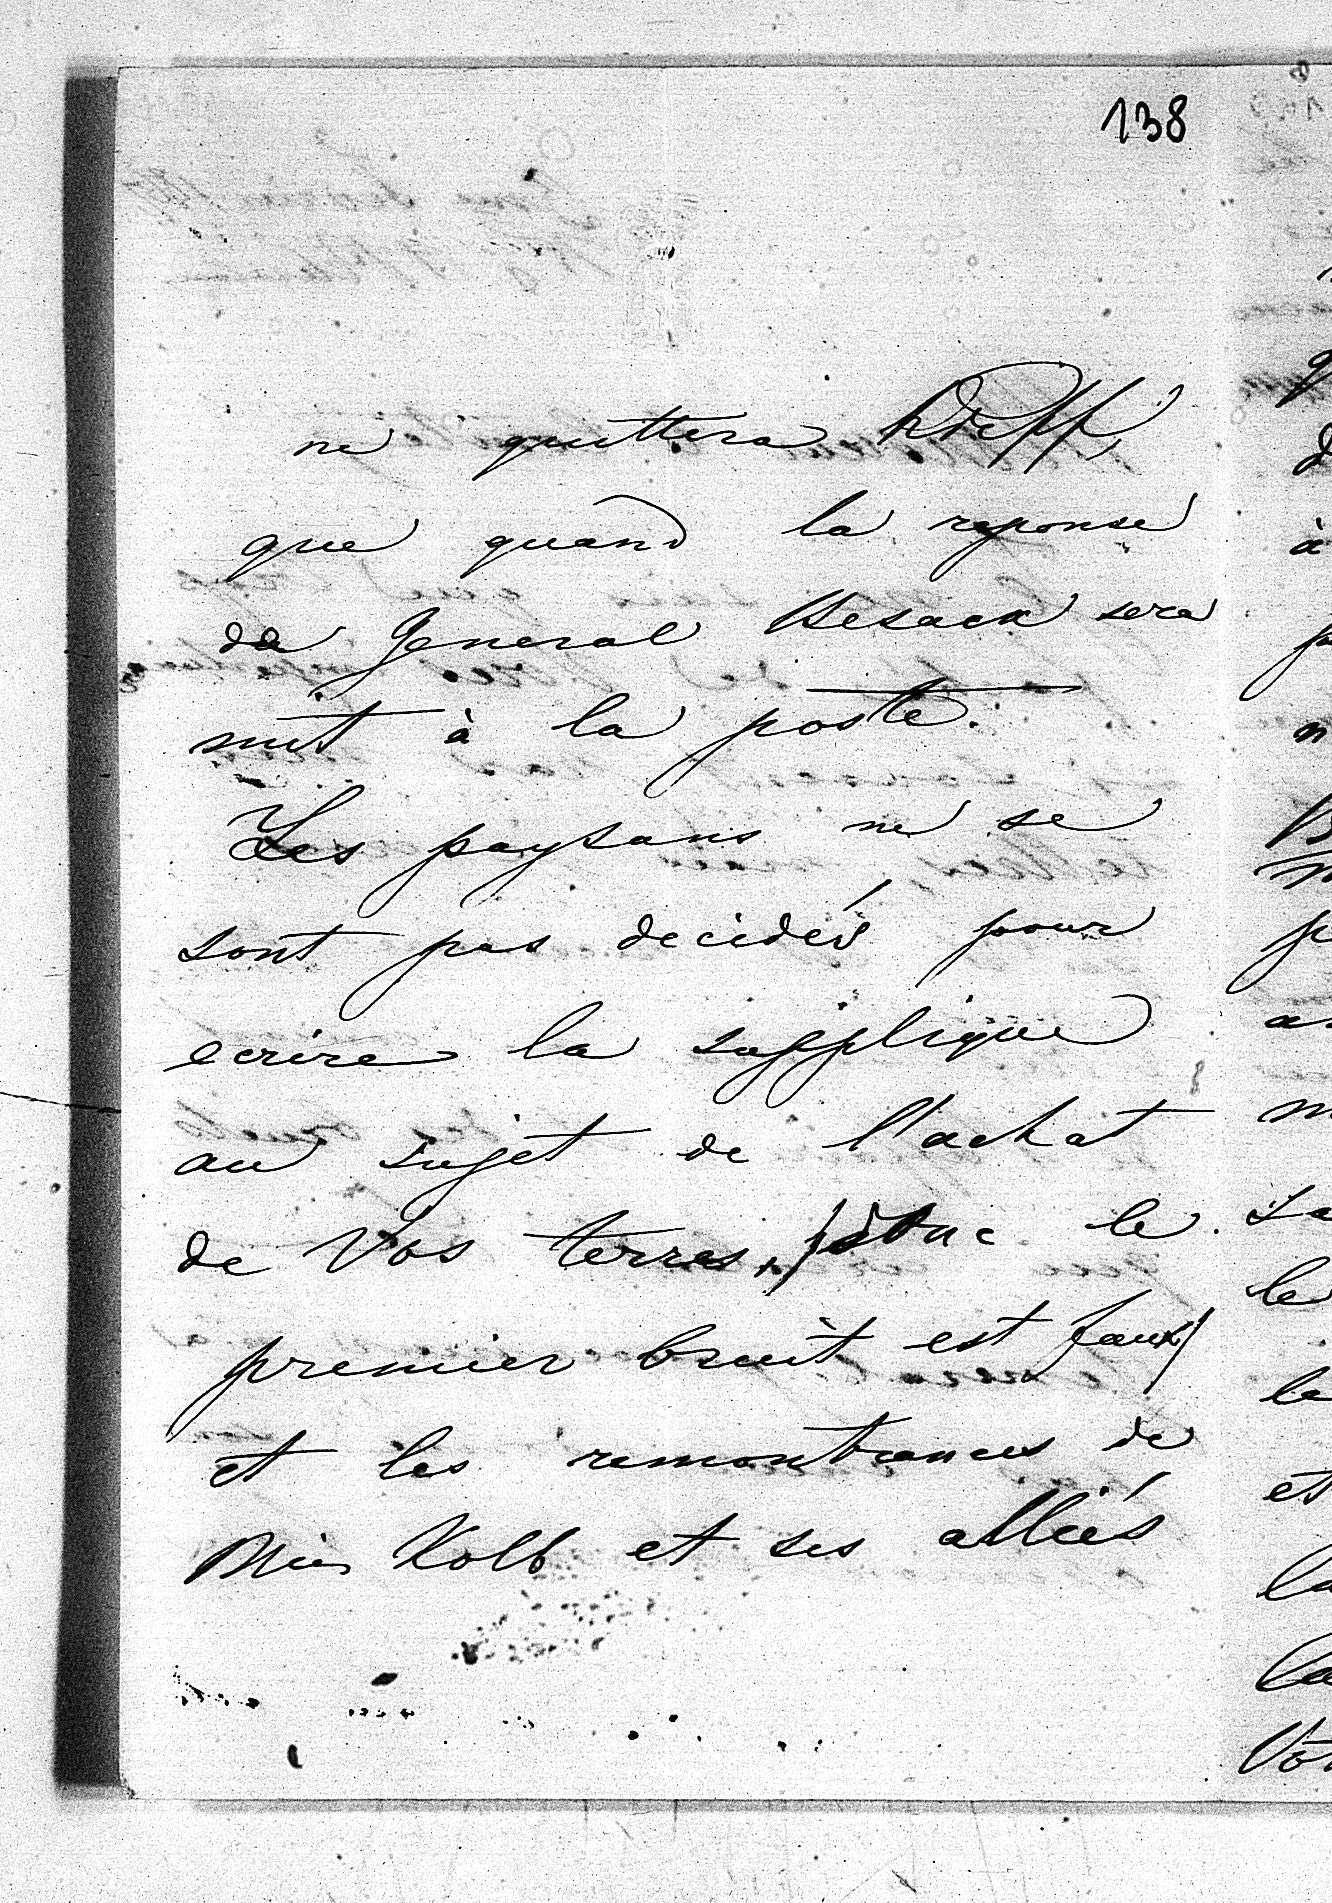 138
ne quittera Kieff,
que quand la reponse
du General Besack sera
mit à la poste.
Les paysans ne se
sont pas decidés pour
ecrire la supplique
au sujet de l'achat
de Vos terres, /donc le
premier bruit est faux/
et les remontrances de
Mier Kolb et ses alliés